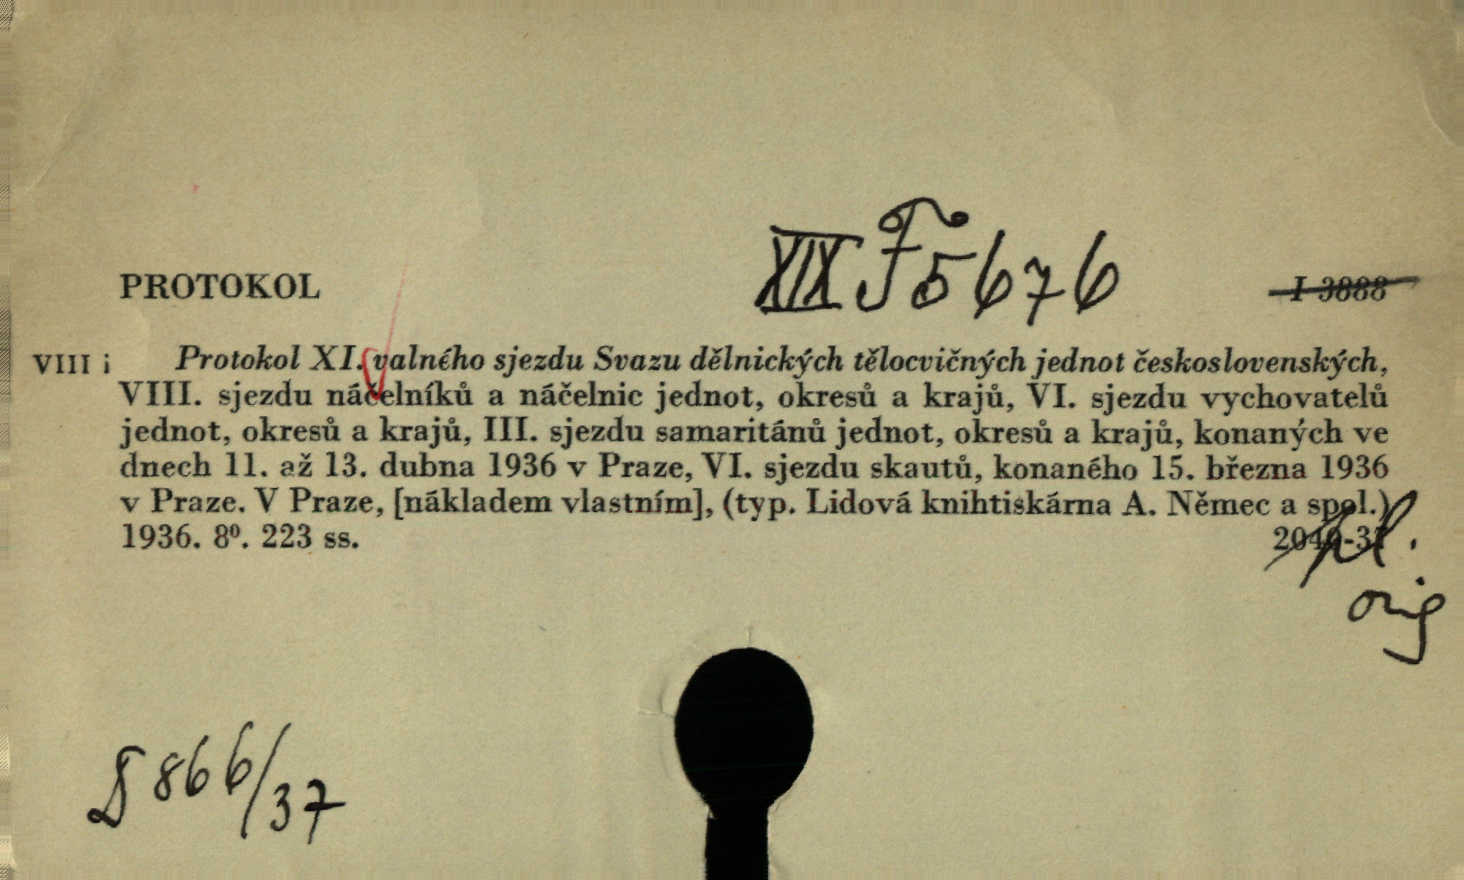 XIX F 5676
PROTOKOL
I 3888
VIII i Protokol XI. valného sjezdu Svazu dělnických tělocvičných jednot československých,
VIII. sjezdu náčelníků a náčelnic jednot, okresů a krajů, VI. sjezdu vychovatelů
jednot, okresů a krajů, III. sjezdu samaritánů jednot, okresů a krajů, konaných ve
dnech 11. až 13. dubna 1936 v Praze, VI. sjezdu skautů, konaného 15. března 1936
v Praze. V Praze, [nákladem vlastním], (typ. Lidová knihtiskárna A. Němec a spol.)
1936. 8⁰. 223 ss.
orig
§ 866/37